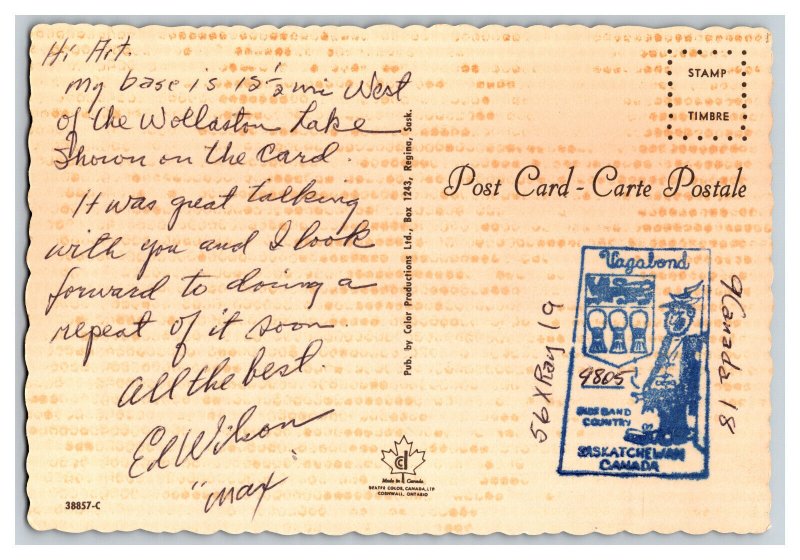 Hi Art.
My base is 15 1/2 mi West
of the Wollaston Lake
Shown on the Card.
It was great talking
with you and I look
forward to doing a
repeat of it soon
All the best.
Ed Wilson
"Max"
38857-C
Pub. by Color Productions Ltd., Box 1243, Regina, Sask.
Made in Canada
DEXTER COLOR, CANADA, LTD
CORNWALL, ONTARIO
STAMP
TIMBRE
Post Card - Carte Postale
56 X Ray 19
Vagabond
9805
COUNTRY
SASKATCHEWAN
CANADA
9 Canada 18